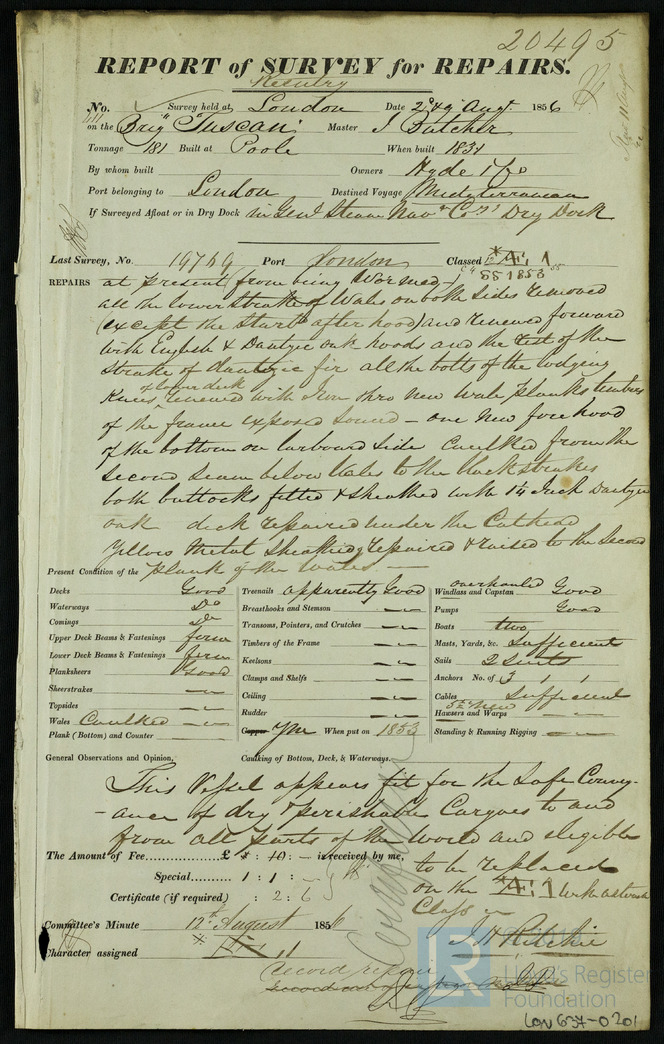 20495
REPORT of SURVEY for REPAIRS.
Reentry
No. Survey held at London Date 2 & 9 Augt 1856
on the Brig "Tuscan" Master J Butcher
Tonnage 181 Built at Poole When built 1831
By whom built Owners Hyde & Co
Port belonging to London Destined Voyage Mediterranean
If Surveyed Afloat or in Dry Dock in Genl Steam Navn Coys Dry Dock
Last Survey, No. 19769 Port London Classed *Æ 1
55 1853
REPAIRS at present from being Wormed
all the lower strake of Wales on both sides removed
(except the Starbd after hood) and renewed forward
with English & Dantzic oak hoods and the rest of the
strake of dantzic fir all the bolts of the lodging
Knees of lower deck renewed with Iron thro new Wale planks timbers
of the frame exposed sound – one new fore hood
of the bottom on larboard side Caulked from the
second seam below Wales to the blackstrakes
both buttocks fitted & sheathed with 1¼ Inch Dantzic
oak deck repaired under the Cathead
Yellow Metal Sheathing repaired & raised to the second
Present Condition of the plank of the wales —
Decks Good
Waterways Do
Comings Do
Upper Deck Beams & Fastenings firm
Lower Deck Beams & Fastenings firm
Planksheers Good
Sheerstrakes — „
Topsides — „
Wales Caulked — „
Plank (Bottom) and Counter
Treenails apparently Good
Breasthooks and Stemson — „
Transoms, Pointers, and Crutches — „
Timbers of the Frame — „
Keelsons — „
Clamps and Shelfs — „
Ceiling — „
Rudder — „
Copper YM When put on 1853
overhauled
Windlass and Capstan Good
Pumps Good
Boats two
Masts, Yards, &c. Sufficient
Sails 2 Suits
Anchors No. of 3 1 1
Cables Sufficient
Hawsers and Warps — „
Standing & Running Rigging — „
General Observations and Opinion, Caulking of Bottom, Deck, & Waterways.
This Vessel appears fit for the Safe Convey-
-ance of dry & perishable Cargoes to and
from all parts of the World and eligible
The Amount of Fee............... £ : 10 : – is received by me,
to be replaced
Special............ 1 : 1 : –
on the *Æ 1
Certificate (if required) : 2 : 6
Class
Committee's Minute 12th August 1856
J H Ritchie
Character assigned *Æ 1
record repair
Lloyd's Register
Foundation
LON 637-0201